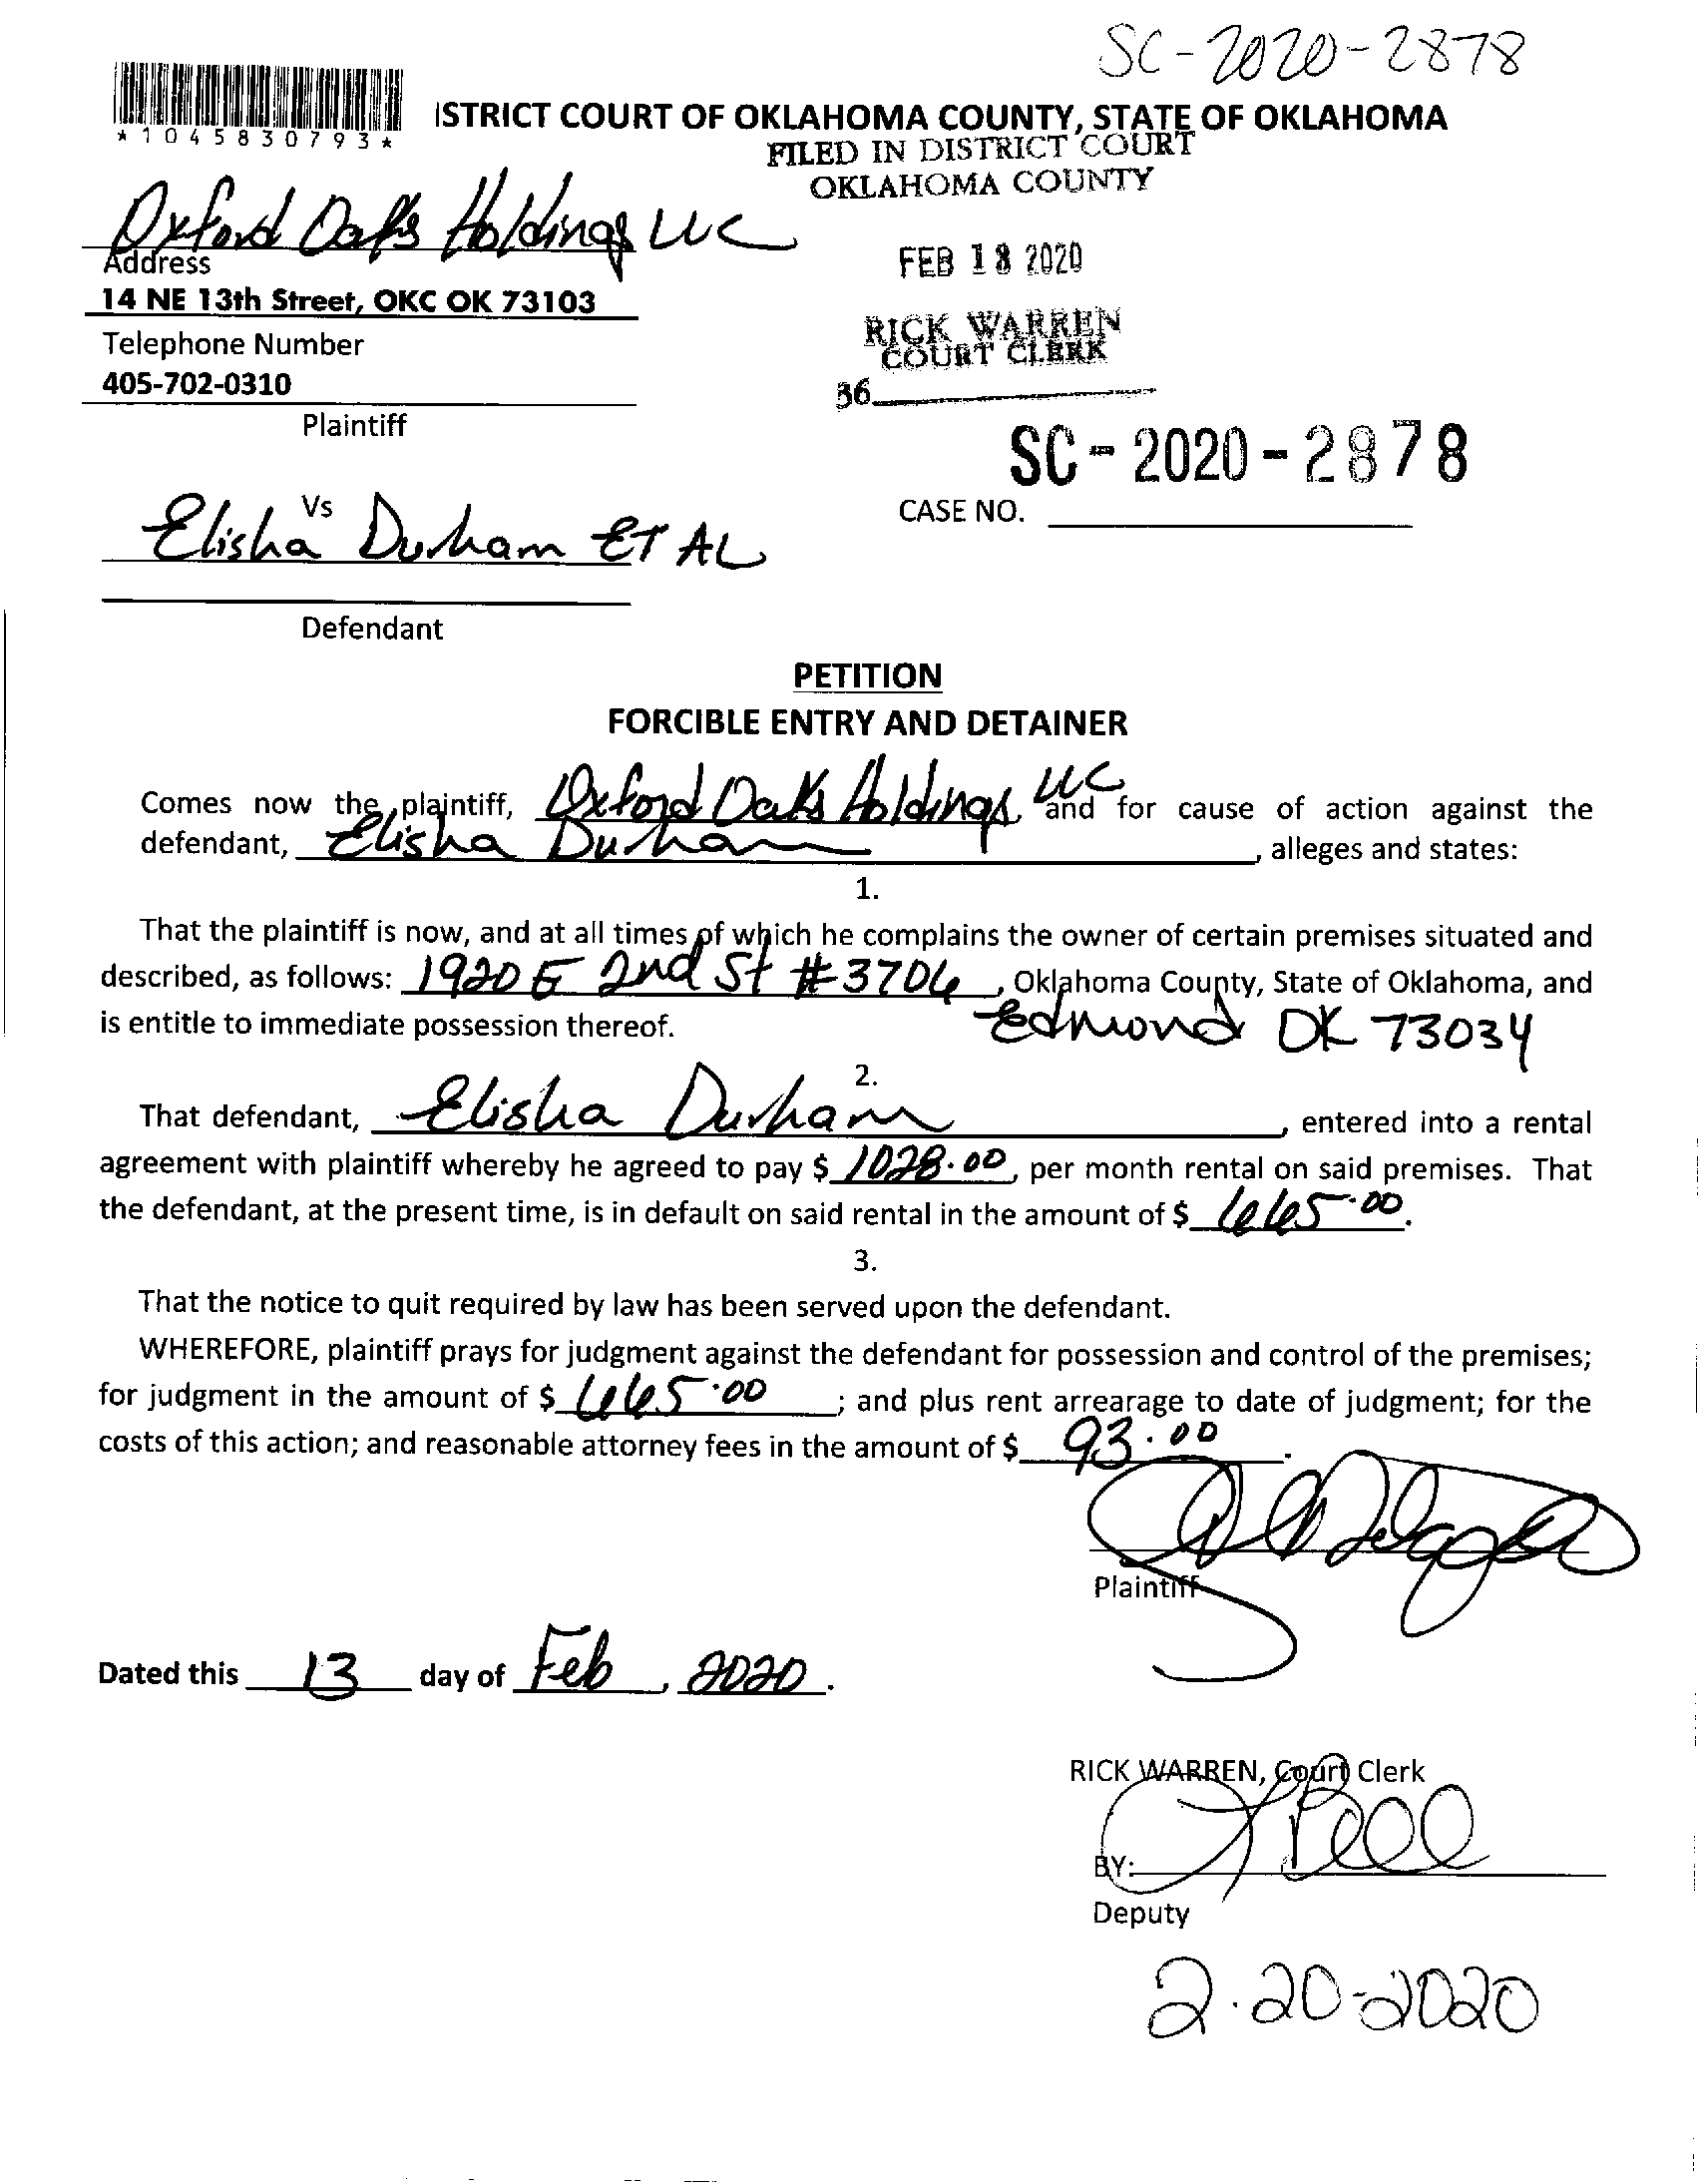 SC-2020-2878
*1045830793*
ISTRICT COURT OF OKLAHOMA COUNTY, STATE OF OKLAHOMA
FILED IN DISTRICT COURT
OKLAHOMA COUNTY
Oxford Oaks Holdings LLC
Address
14 NE 13th Street, OKC OK 73103
Telephone Number
405-702-0310
Plaintiff
FEB 18 2020
RICK WARREN
COURT CLERK
36
SC-2020-2878
CASE NO.
Vs
Elisha Durham ET AL
Defendant
PETITION
FORCIBLE ENTRY AND DETAINER
Comes now the plaintiff, Oxford Oaks Holdings, LLC and for cause of action against the
defendant, Elisha Durham, alleges and states:
1.
That the plaintiff is now, and at all times of which he complains the owner of certain premises situated and
described, as follows: 1920 E 2nd St #3706, Oklahoma County, State of Oklahoma, and
is entitle to immediate possession thereof. Edmond OK 73034
2.
That defendant, Elisha Durham, entered into a rental
agreement with plaintiff whereby he agreed to pay $ 1028.00, per month rental on said premises. That
the defendant, at the present time, is in default on said rental in the amount of $ 665.00.
3.
That the notice to quit required by law has been served upon the defendant.
WHEREFORE, plaintiff prays for judgment against the defendant for possession and control of the premises;
for judgment in the amount of $ 665.00; and plus rent arrearage to date of judgment; for the
costs of this action; and reasonable attorney fees in the amount of $ 93.00.
Plaintiff
Dated this 13 day of Feb, 2020.
RICK WARREN, Court Clerk
BY:
Deputy
2-20-2020